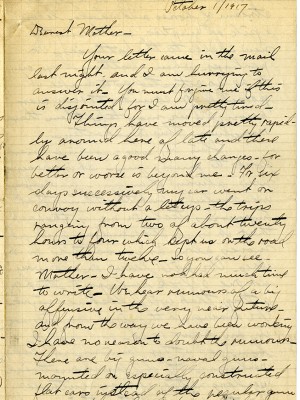 October 1/1917.
Dearest Mother-
Your letter came in the mail
last night, and I am hurrying to
answer it. You must forgive me if this
is disjointed for I am pretty tired-
Things have moved pretty rapid-
ly around here of late and there
have been a good many changes- for
better or worse is beyond me- For six
days successively my car went on
convoy without a let up- the trips
ranging from two of about twenty
hours to four which kept us on the road
more than twelve- so you can see-
Mother- I have not had much time
to write- We hear rumours of a big
offensive in the very near future-
and from the way we have been working
I have no reason to doubt the rumours-
There are big guns- naval guns-
mounted on especially constructed
flat cars instead of the regular gun